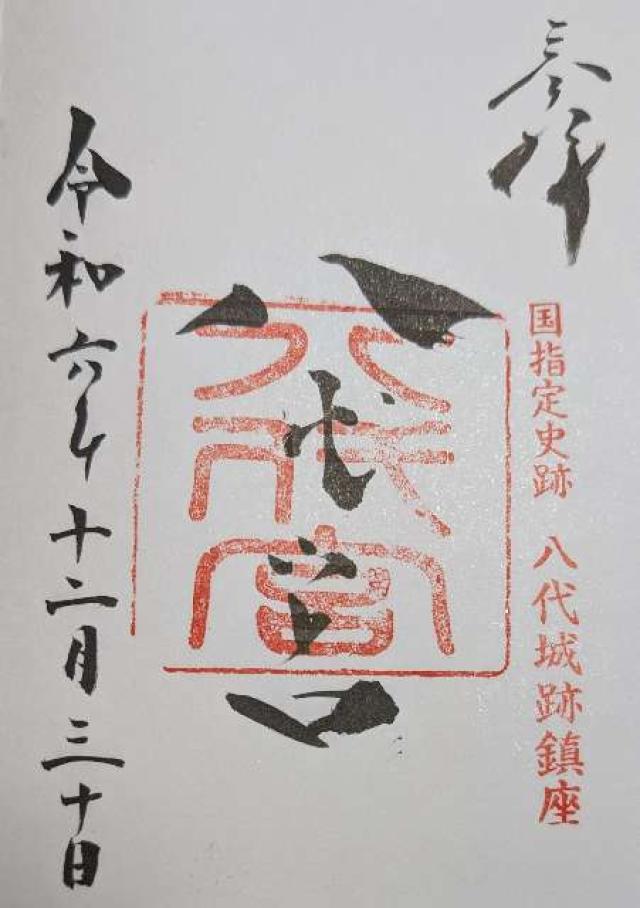 奉拝
国指定史跡 八代城跡鎮座
八代宮
八代宮
令和六年十二月三十日